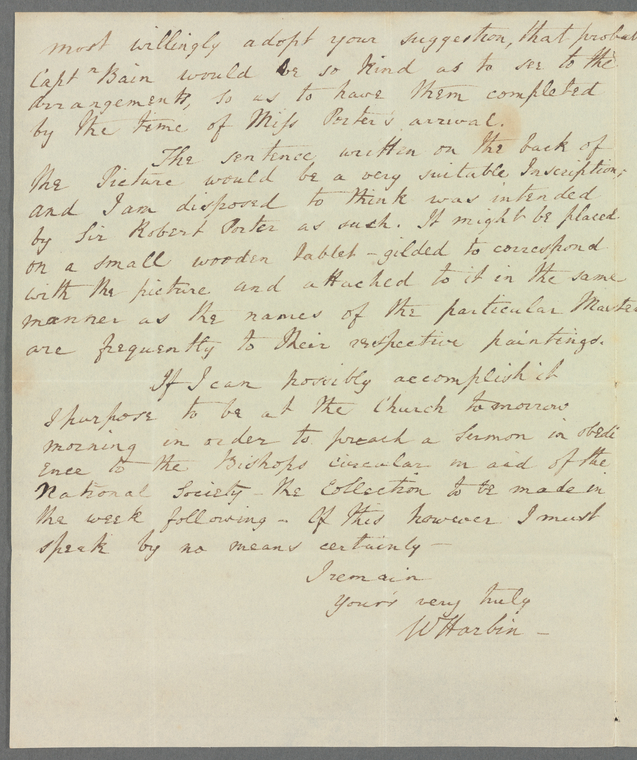 most willingly adopt your suggestion, that probab
Captn Bain would be so kind as to see to the
arrangements, so as to have them completed
by the time of Miss Porter's arrival.
The sentence written on the back of
the Picture would be a very suitable Inscription,
and I am disposed to think was intended
by Sir Robert Porter as such. It might be placed
on a small wooden tablet - gilded to correspond
with the picture and attached to it in the same
manner as the names of the particular Master
are frequently to their respective paintings.
If I can possibly accomplish it
I purpose to be at the Church tomorrow
morning in order to preach a Sermon in obedi
ence to the Bishops circular in aid of the
National Society - the Collection to be made in
the week following - Of this however I must
speak by no means certainly -
I remain
Your's very truly
W Harbin -